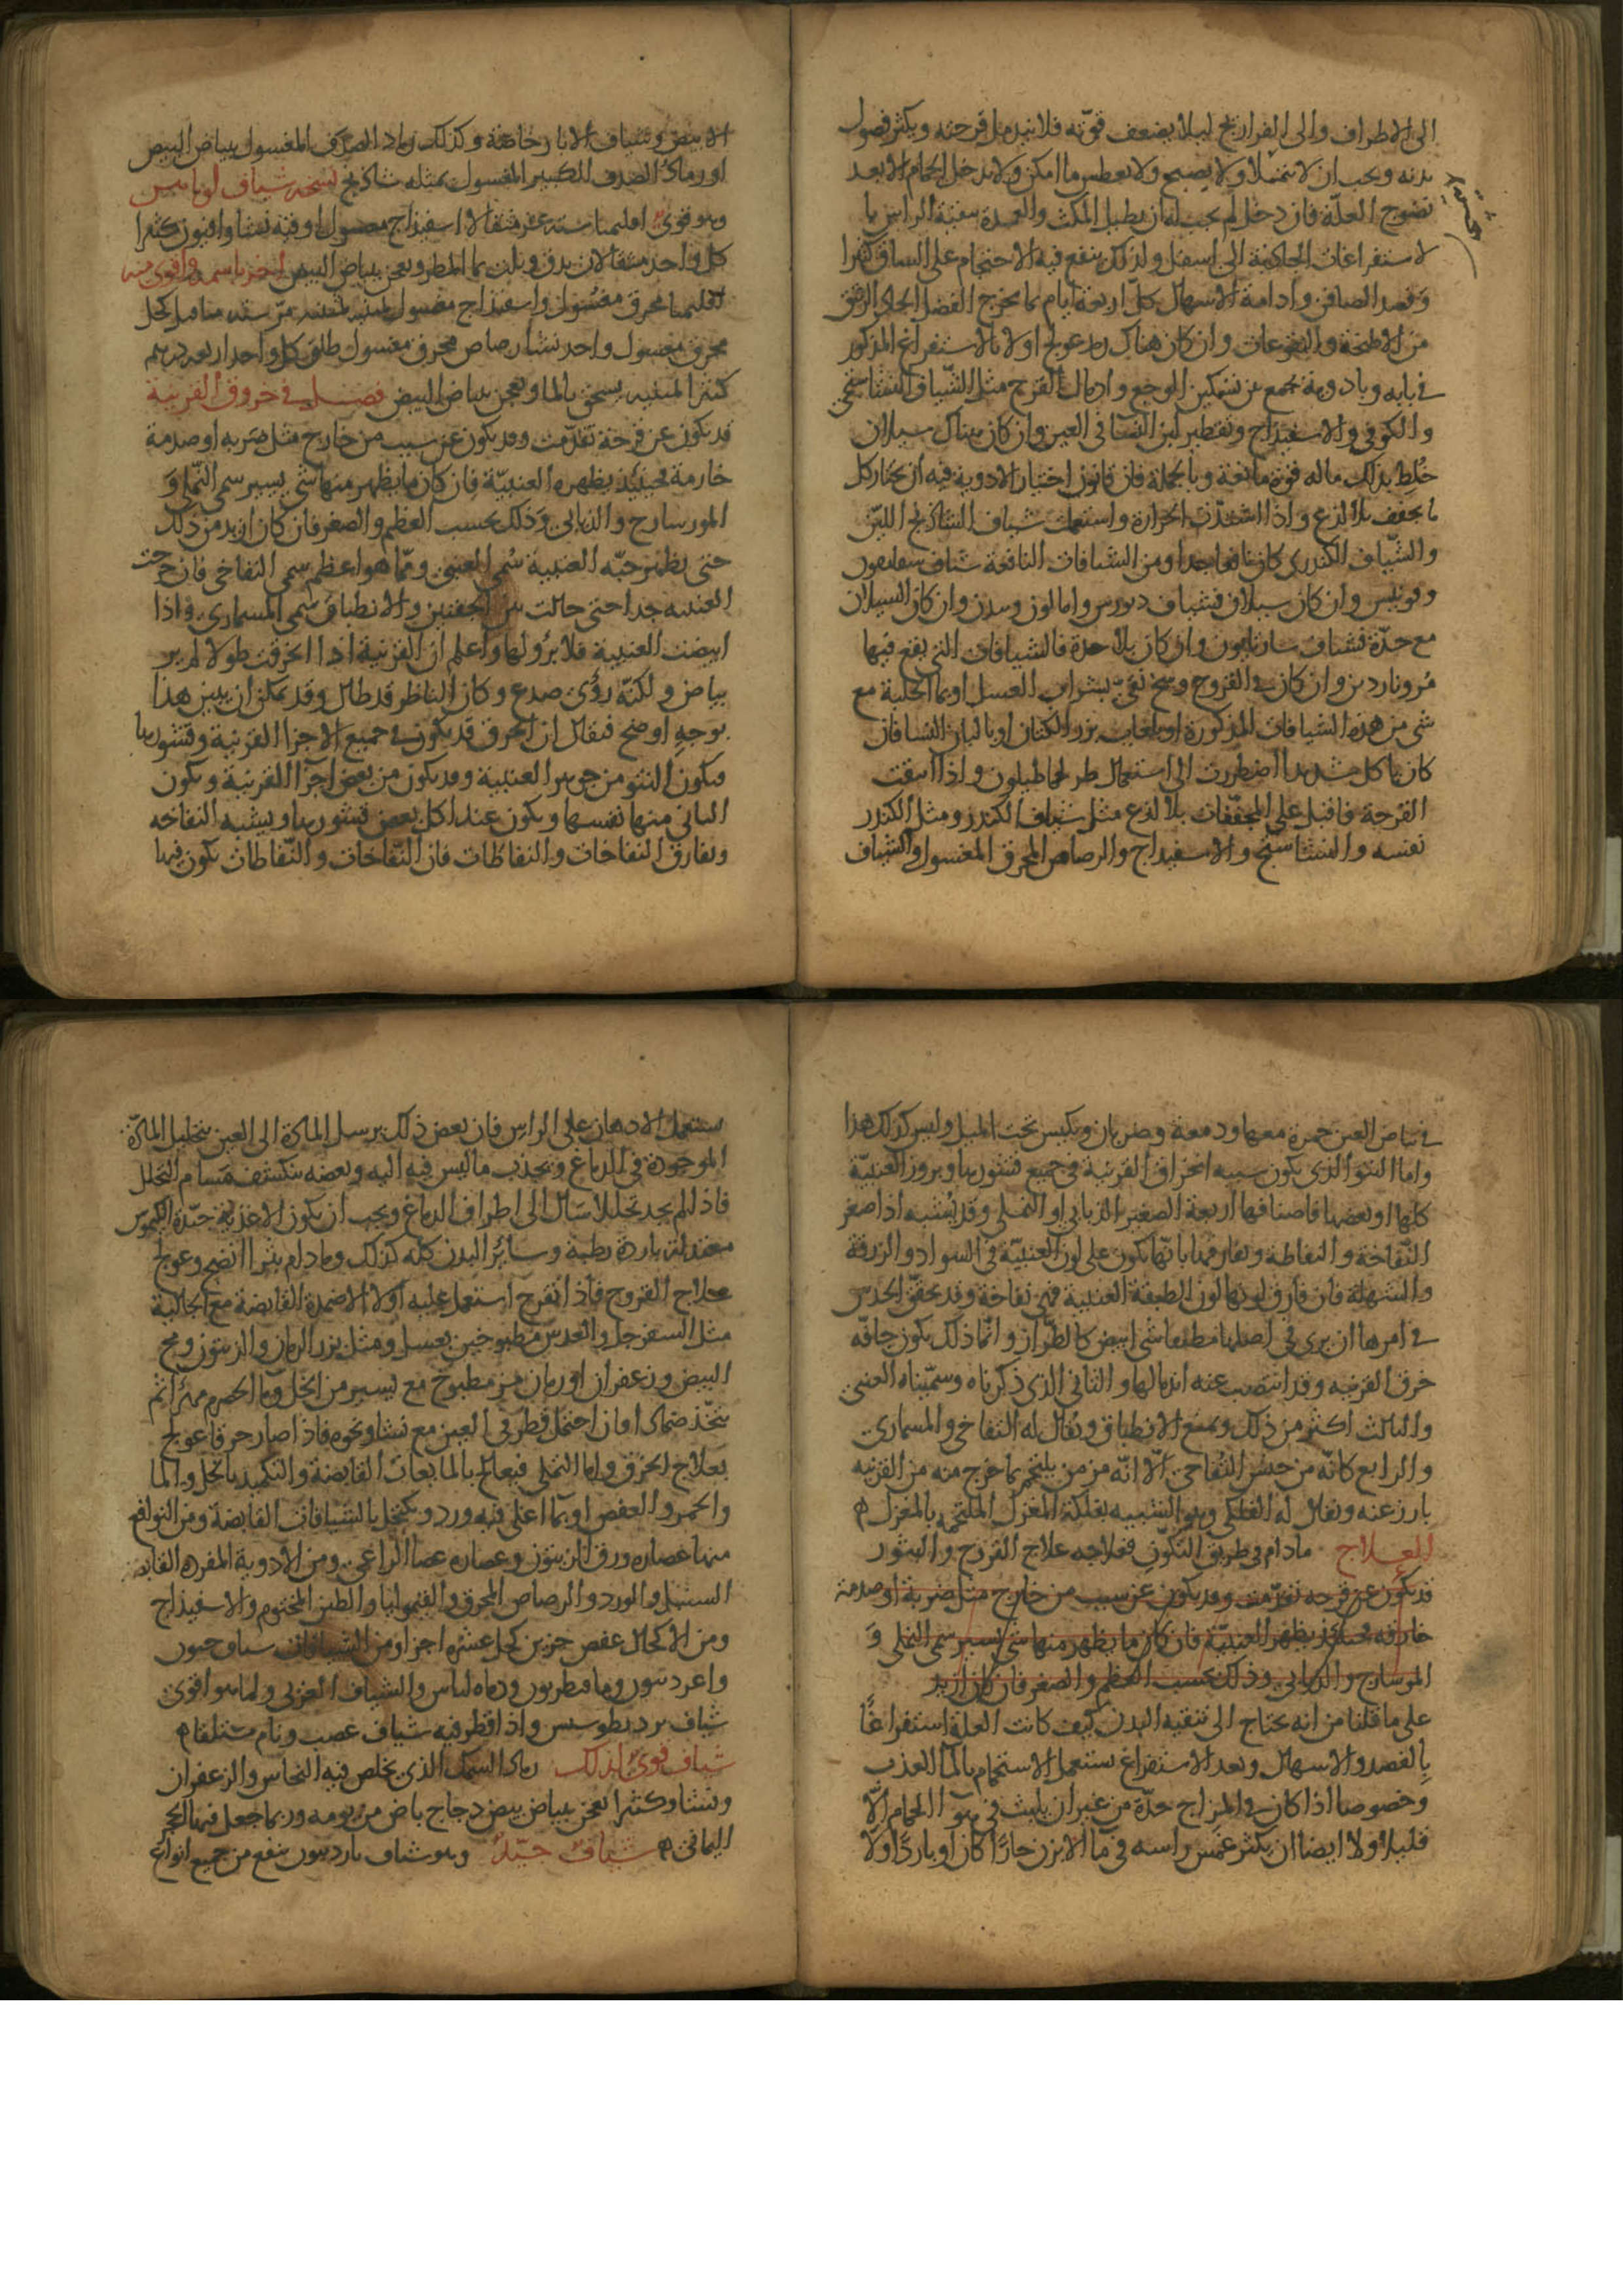 الى الاطراف والى الفراريج ليلا يضعف قوته فلا يندمل قرحته ويكثر فضول
بدنه ويجب ان لا يمتلا ولا يصيح ولا يعطس ما امكن ولا يدخل الحمام الا بعد
نضوج العلة فان دخل لم يجب له ان يطيل المكث والعمدة تنقية الراس با
لاستفراغات الجاذبة الى اسفل ولذلك ينفع فيه الاحتجام على الساق كثيرا
وفصد الصافن وادامة الاسهال كل اربعة ايام بما يخرج الفضل الحاد الرقيق
من الاطبخة والنقوعات وان كان هناك رمد عولج اولا بالاستفراغ المذكور
في بابه وبادوية تجمع بين تسكين الوجع وادمال القرح مثل الشياف النشاستجي
والكوفي والاسفيذاج وتقطير لبن النسا في العين وان كان هناك سيلان
خلط بذلك ماله قوة مانعة وبالجملة فان قانون اختيار الادوية فيه ان يختار كل
ما يجفف بلا لذع واذا اشتدت الحرارة واستعملت شياف الشاذنج اللين
والشياف الكندري كان نافعا جدا ومن الشيافات النافعة شياف
وان كان سيلان فشياف وان كان السيلان
مع حدة فشياف وان كان بلا حدة فالشيافات التي يقع فيها
مر وناردين وان كان في القروح وسخ نقي بشراب العسل او بما الحلبة مع
شي من هذه الشيافات المذكورة او بلعاب بزر الكتان او بالبان النسا فان
كان تاكل شديد اضطررت الى استعمال طرخماطيقون واذا انتقت
القرحة فاقبل على المجففات بلا لذع مثل شياف الكندر ومثل الكندر
نفسه والنشاستج والاسفيداج والرصاص المحرق المغسول والشياف
الابيض وشياف الابار خاصة وكذلك رماد الصدف المغسول ببياض البيض
او رماد الصدف الكبير المغسول بمثله شاذنج نسخة شياف
وهو قوي اقليميا ستة عشر مثقالا اسفيذاج مغسول اوقية نشا وافيون كثيرا
كل واحد مثقالان يدق ويلت بما المطر ويعجن ببياض البيض اخر باسمه واقوى منه
اقليميا محرق مغسول واسفيذاج مغسول كحل
محرق مغسول واحد نشا رصاص محرق مغسول طلق كل واحد اربعة درهم
كثيرا ثمنيه يسحق بالما ويعجن ببياض البيض فصل في خروق القرنية
قد يكون عن قرحة تقدمت وقد يكون عن سبب من خارج مثل ضربة او صدمة
خارمة فحينئذ يظهر العنبية فان كان ما يظهر منها شي يسير سمي النملي و
المورسارج والذبابي وذلك بحسب العظم والصغر فان كان ازيد من ذلك
حتى يظهر حبه العنبية سمي العنبي ومما هو اعظم سمي النفاخي فان خرجت
العنبيه جدا حتى حالت بين الجفنين والانطباق سمي المسماري واذا
ابيضت العنبية فلا برؤ لها واعلم ان القرنية اذا انخرقت طولا لم ير
بياض ولكنه رؤى صدع وكان الناظر قد طال وقد يمكن ان يبين هذا
بوجه اوضح فنقال ان الخرق قد يكون في جميع الاجزا القرنية وقشورها
فيكون النتو من جوهر العنبية وقد يكون من بعض اجزا القرنية ويكون
الناتي منها نفسها ويكون عند اكل بعض قشورها ويشبه النفاخه
ويفارق النفاخات والنفاطات فان النفاخات والنفاطات يكون فيها
في بياض العين حمرة معها ودمعة وضربان ويكبس تحت الميل وليس كذلك هذا
واما النتو الذي يكون سببه انخراق القرنية في جميع قشورها وبروز العنبية
كلها او بعضها فاصنافها اربعة الصغير الذبابي او النملي وقد يشبه اذا صغر
النفاخة والنفاطة ويفارقهما بانها يكون على لون العنبية في السواد والزرقة
والشهلة فان فارق لونها لون الطبقة العنبية فهي نفاخة وقد يحقق الحدس
في امرها ان يرى في اصلها مطيفا شي ابيض كالطراز وانما ذلك يكون حافة
خرق القرنيه وقد ابيضت عنه اندمالها والثاني الذي ذكرناه وسميناه العنبي
والثالث اكثر من ذلك ويمنع الانطباق ويقال له النفاخي والمسماري
والرابع كانه من جنس النفاخي الا انه مزمن يلتحم بما خرج منه من القرنيه
بارز عنه ويقال له الفلكي وهو الشبيه بفلكة المغزل الملتحمه بالمغزل
العلاج مادام في طريق التكون فعلاجه علاج القروح والبثور
قد يكون عن قرحه تقدمت وقد يكون عن سبب من خارج مثل ضربة او صدمة
خارقه فحينئذ يظهر العنبية فان كان ما يظهر منها شي يسير سمي النملي و
المورسارج والذبابي وذلك بحسب العظم والصغر فان كان ازيد
على ما قلنا من انه يحتاج الى تنقيه البدن كيف كانت العلة استفراغا
بالفصد والاسهال وبعد الاستفراغ يستعمل الاستحمام بالما العذب
وخصوصا اذا كان في المزاج حدة من غير ان يلبث في هوا الحمام الا
قليلا ولا ايضا ان يكثر غمس راسه في ما الابزن حارا كان او باردا ولا
يستعمل الادهان على الراس فان بعض ذلك يرسل المادة الى العين بتحليل المادة
الموجودة في الدماغ وبجذب ما ليس فيه اليه وبعضه بتكثيف مسام التحلل
فاذا لم يجد تحليلا سال الى اطراف الدماغ ويجب ان يكون الاغذية جيدة الكيموس
معتدلة باردة رطبة وساير البدن كله كذلك ومادام بثرا انضج وعولج
علاج القروح فاذا انقرح استعمل عليه اولا الاضمدة القابضة مع الجالية
مثل السفرجل والعدس مطبوخين بعسل ومثل بزر الرمان والزيتون ومح
البيض وزعفران او رمان مز مطبوخ مع يسير من الخل وما الحصرم
يتخذ ضمادا وان احتمل قطر في العين مع نشا ونحوه فاذا صار خرقا عولج
بعلاج الخرق واما النملي فيعالج بالمايعات القابضة والتكميد بالخل والما
والخمر والعفص او بما اغلي فيه ورد ويكتحل بالشيافات القابضة ومن التوالف
منها عصاره ورق الزيتون وعصاره عصا الراعي ومن الادوية المفرده القابضة
السنبل والورد والرصاص المحرق والقيموليا والطين المختوم والاسفيذاج
ومن الاكحال عفص جزين كحل عشره اجزا ومن الشيافات شياف حنون
والشياف الغربي واما هو اقوى
شياف واذا قطر فيه شياف عصب ونام مستلقا
شياف قوي لذلك رماد السمك الذي يخلص فيه النحاس والزعفران
ونشا وكثيرا يعجن ببياض بيض دجاج باض من يومه وربما جعل فيها الحجر
اليماني شياف جيد وهو شياف باردبيون ينفع من جميع انواع